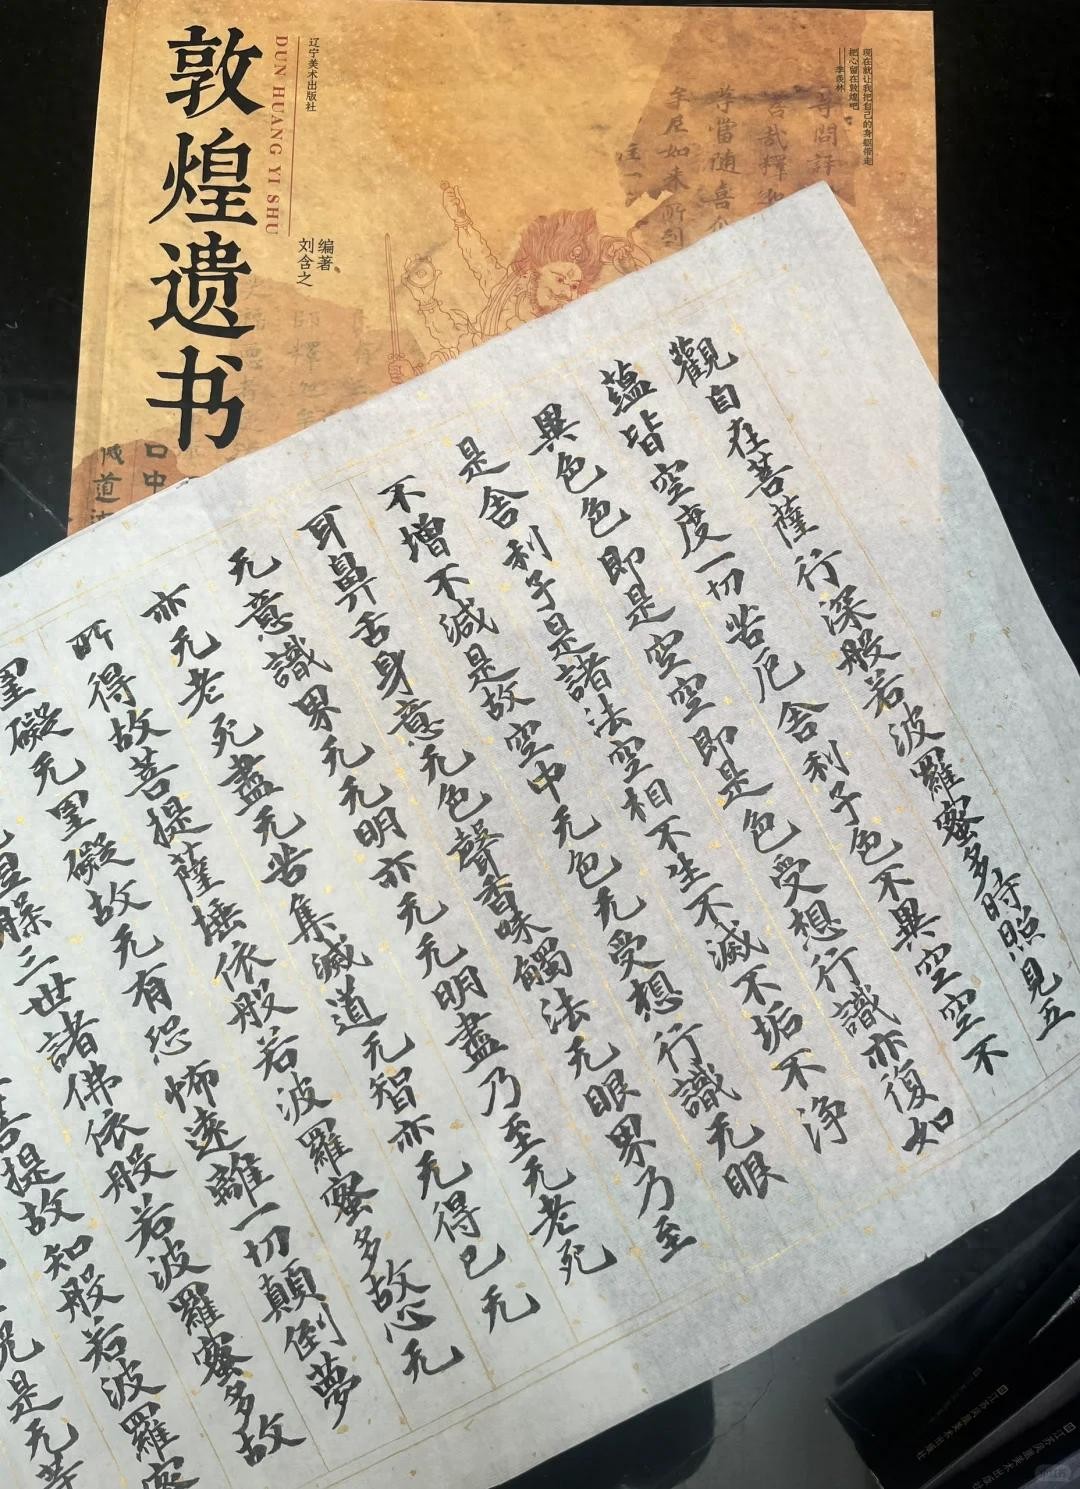 敦煌遗书
DUN HUANG YI SHU
辽宁美术出版社
编著
刘含之
现在就让我把自己的身躯带走
把心留在敦煌吧
——季羡林
善哉釋
等當隨喜
牟尼如来所到
口中
成道
觀自在菩薩行深般若波羅蜜多時照見五
蘊皆空度一切苦厄舍利子色不異空空不
異色色即是空空即是色受想行識亦復如
是舍利子是諸法空相不生不滅不垢不淨
不增不減是故空中无色无受想行識无眼
耳鼻舌身意无色聲香味觸法无眼界乃至
无意識界无无明亦无无明盡乃至无老死
亦无老死盡无苦集滅道无智亦无得已无
所得故菩提薩埵依般若波羅蜜多故心无
罣礙无罣礙故无有恐怖遠離一切顛倒夢
槃三世諸佛依般若波羅蜜多故
菩提故知般若波羅蜜
咒是无等
江苏凤凰美术出版社
江苏凤凰美术出版社